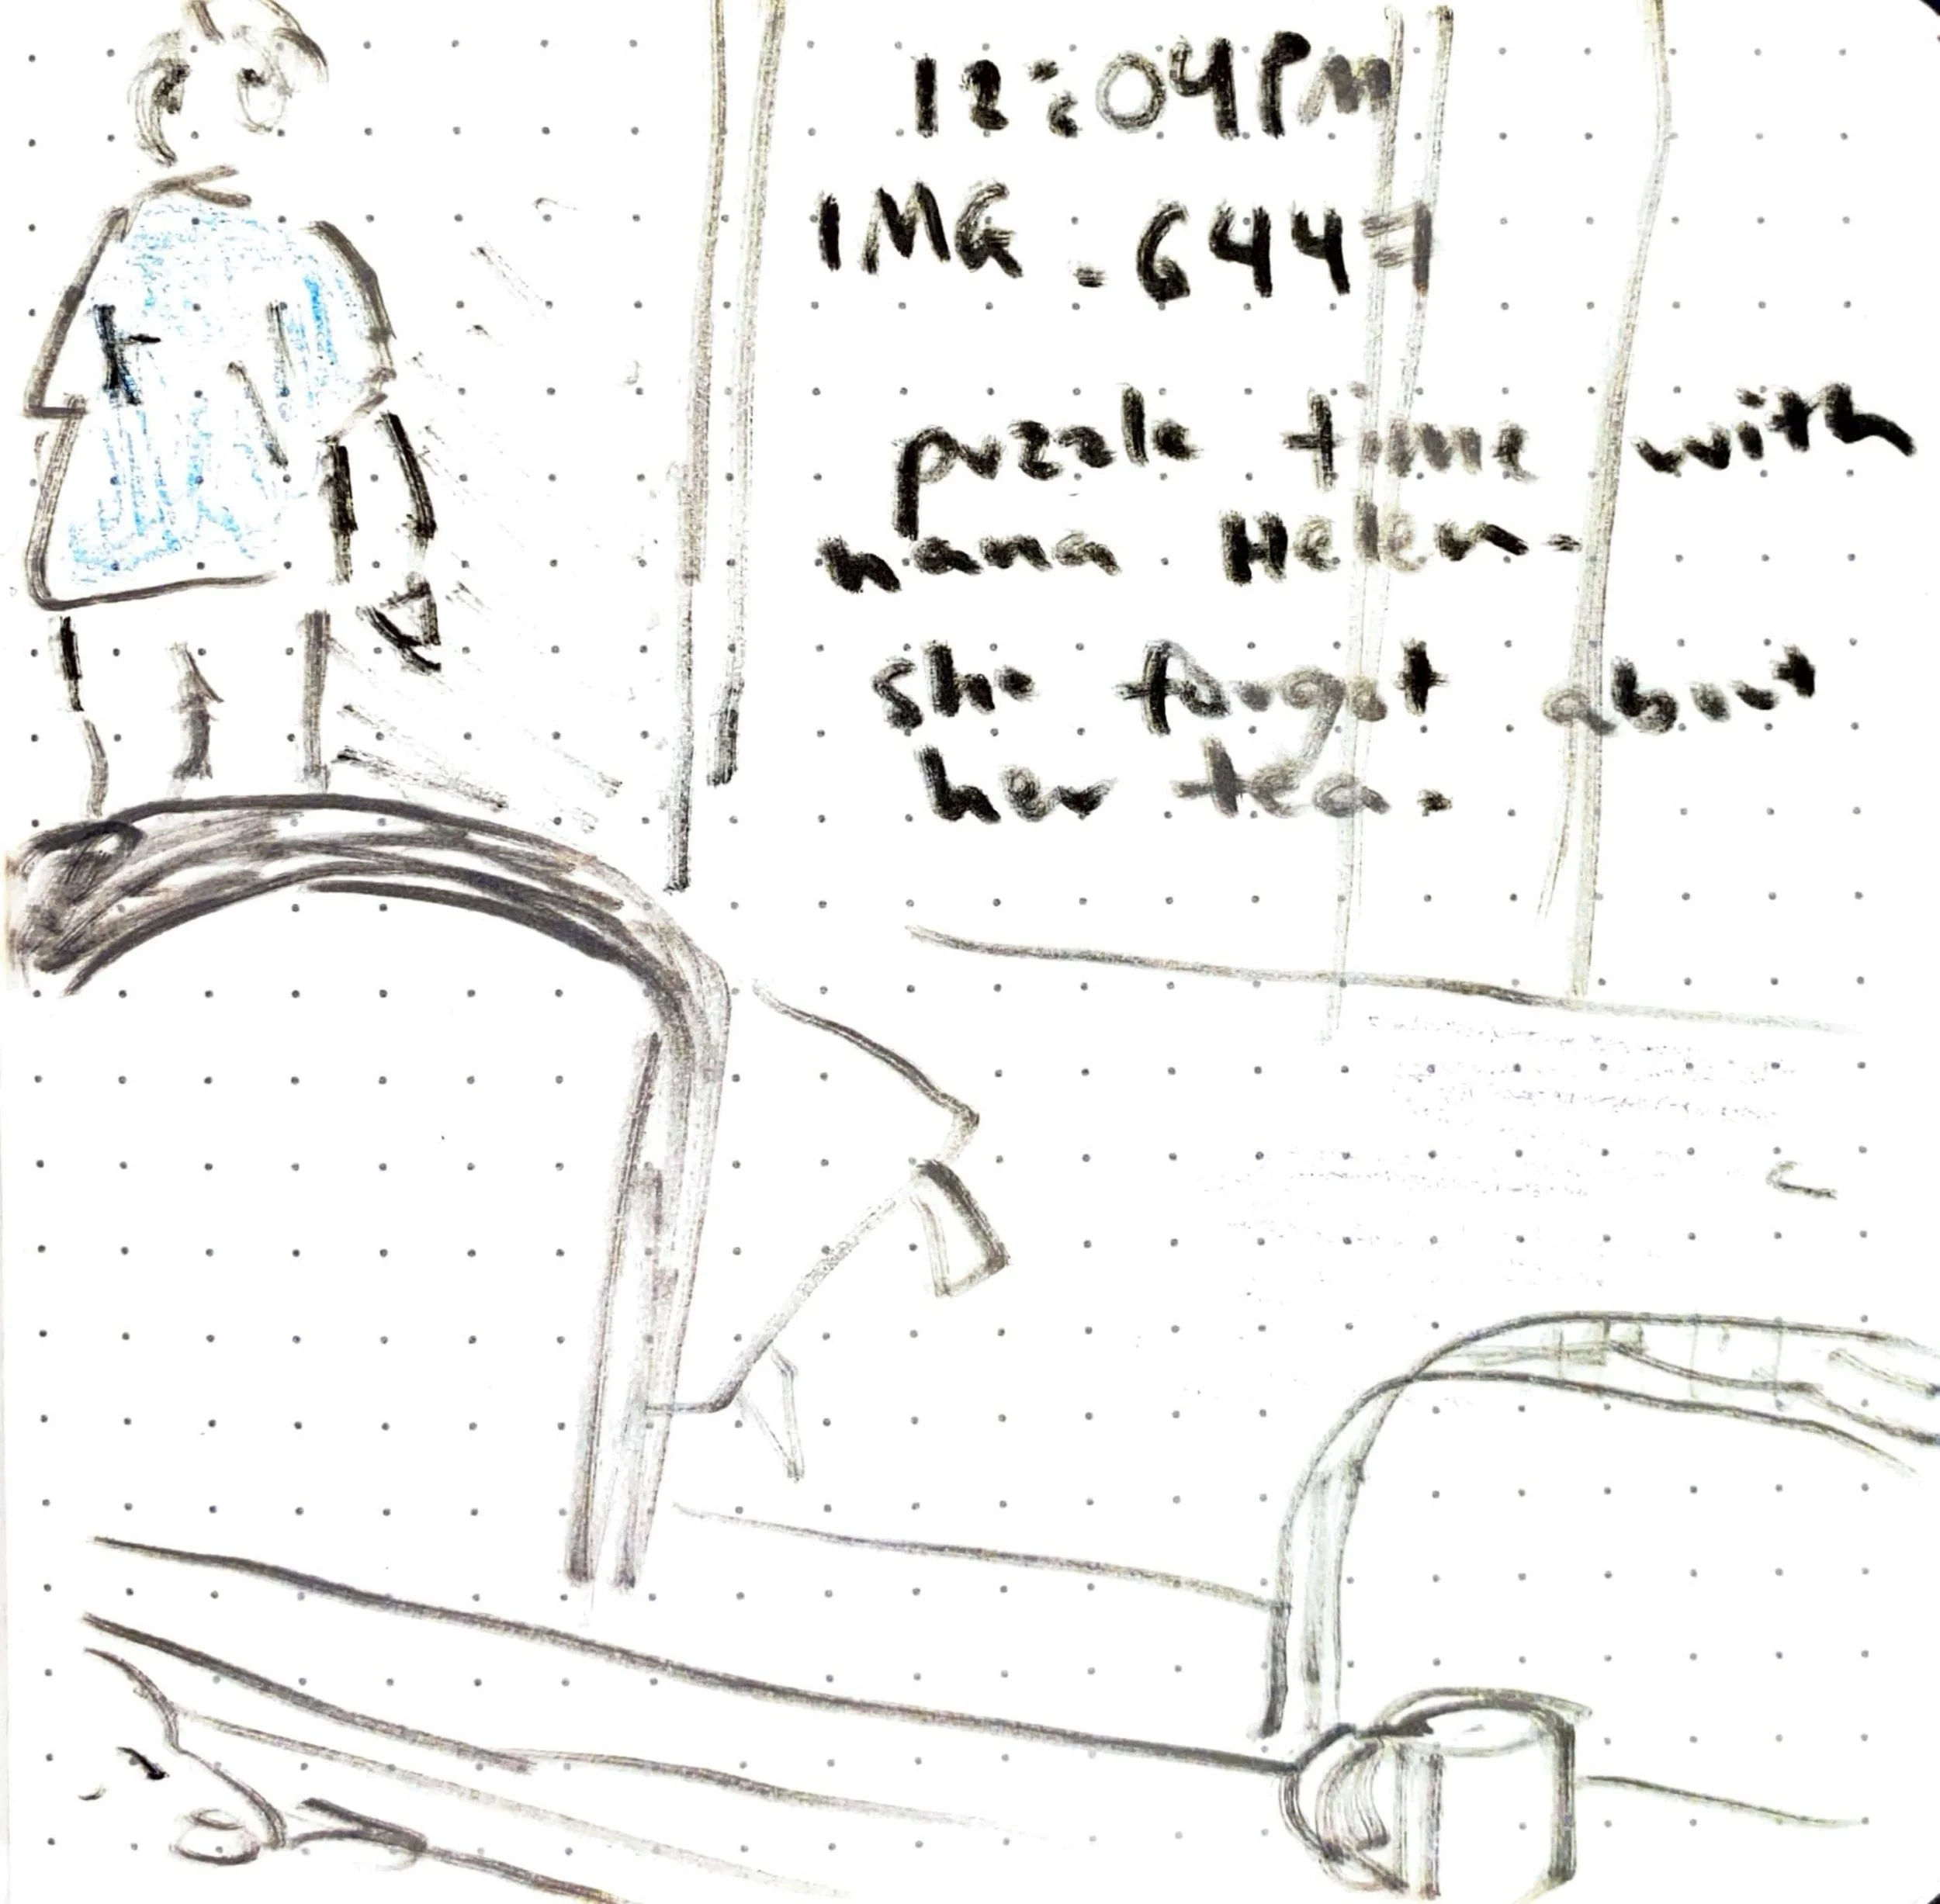 12:04PM
IMG_6447
puzzle time with
nana Helen.
she forgot about
her tea.